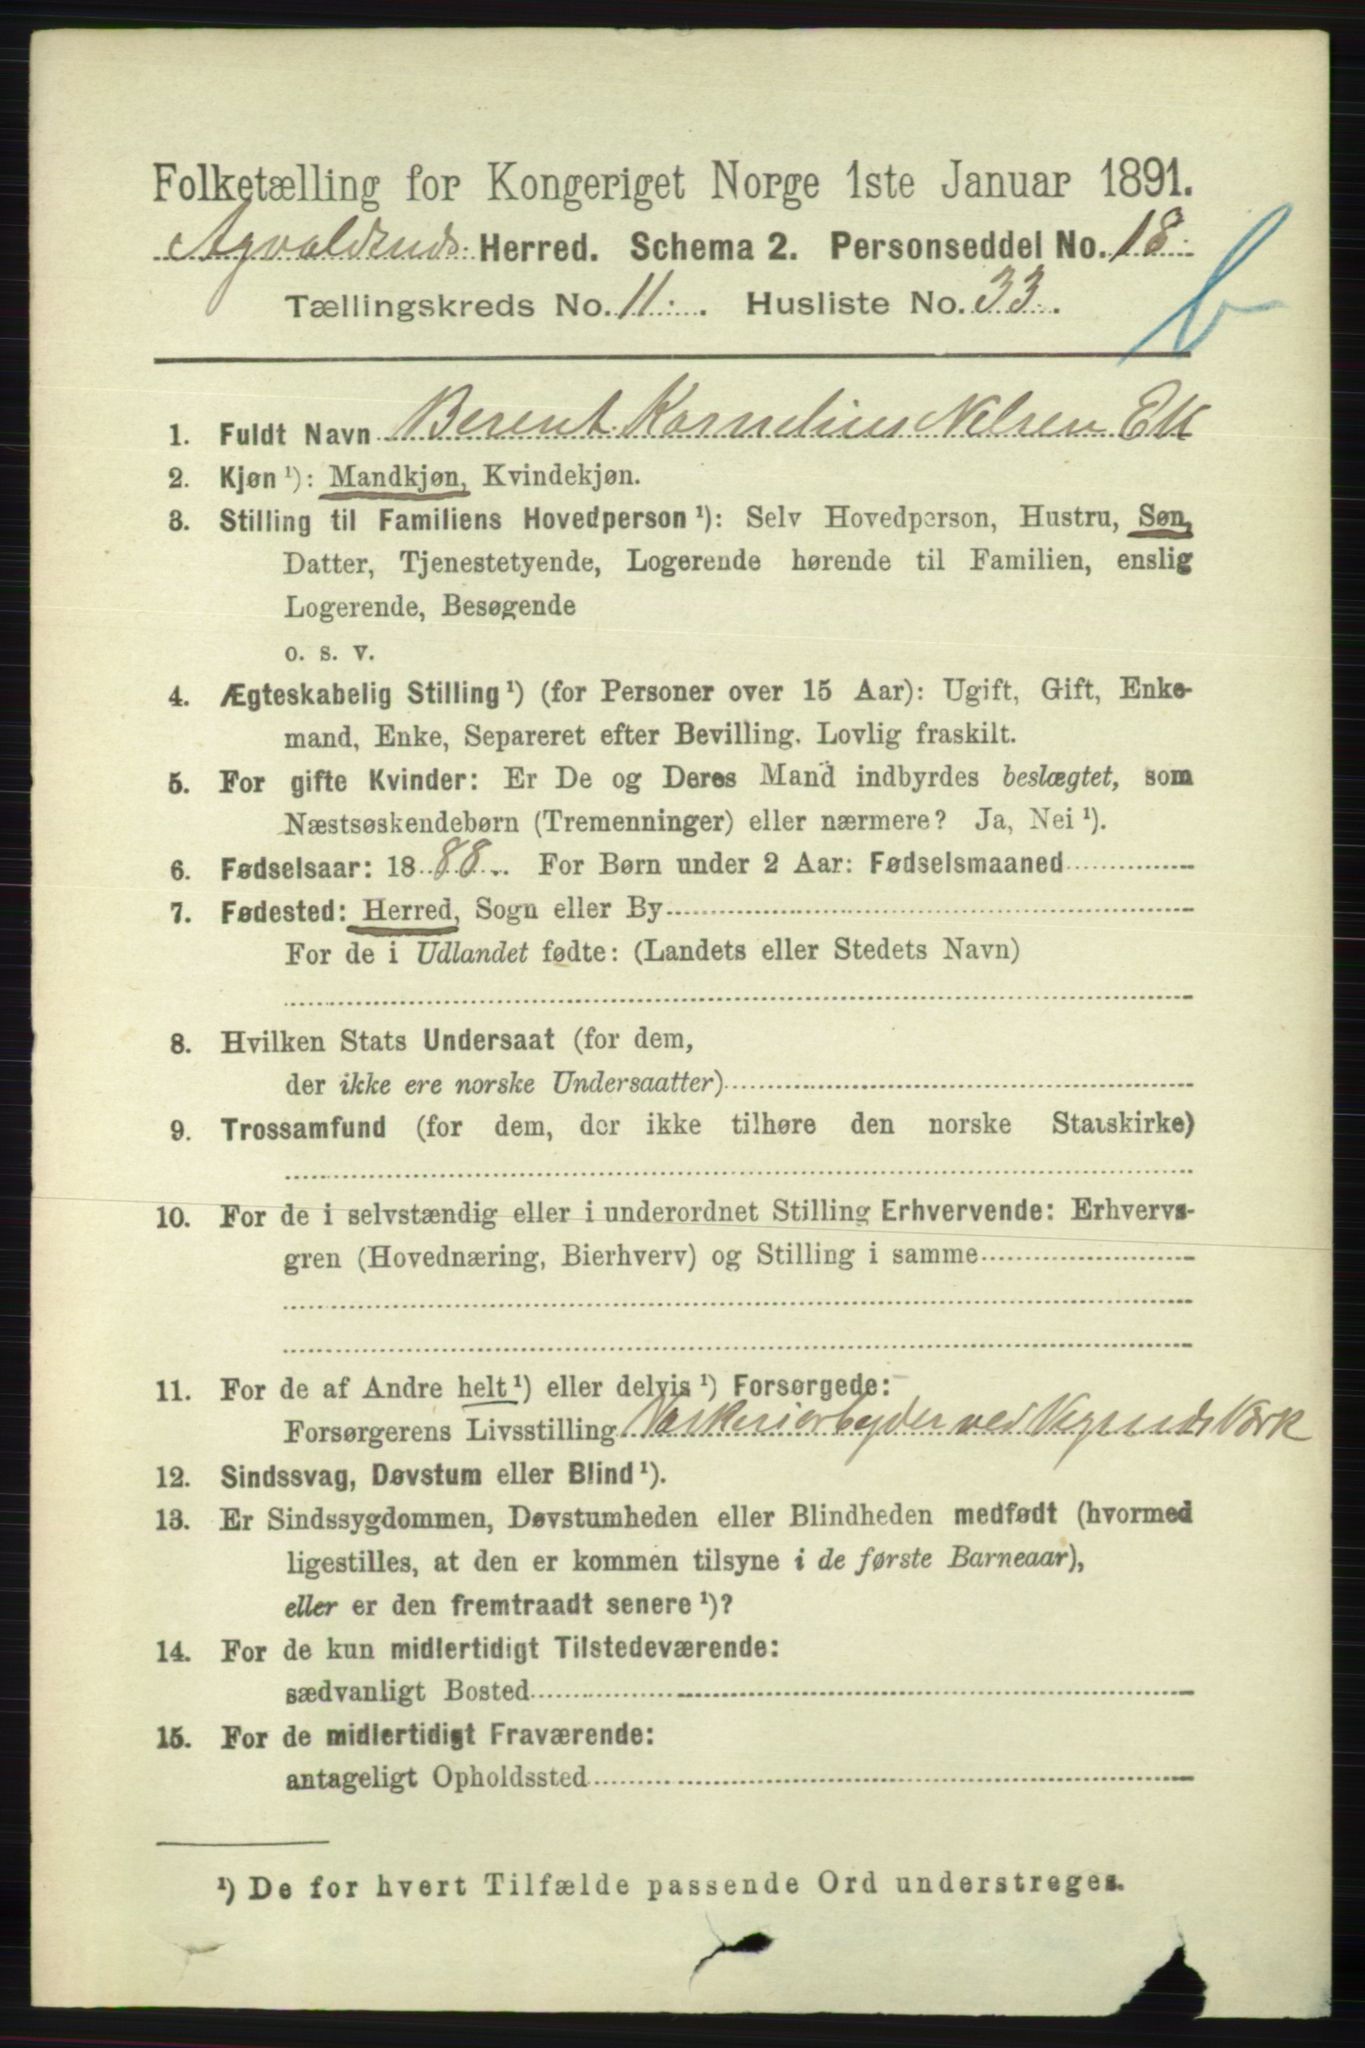 Folketælling for Kongeriget Norge 1ste Januar 1891.
Agvaldsnds Herred. Schema 2. Personseddel No. 18.
Tællingskreds No. 11. Husliste No. 33.
b
1. Fuldt Navn Berent Kornelius Nelsen Ek
2. Kjøn ¹): Mandkjøn, Kvindekjøn.
3. Stilling til Familiens Hovedperson ¹): Selv Hovedperson, Hustru, Søn,
Datter, Tjenestetyende, Logerende hørende til Familien, enslig
Logerende, Besøgende
o. s. v.
4. Ægteskabelig Stilling ¹) (for Personer over 15 Aar): Ugift, Gift, Enke-
mand, Enke, Separeret efter Bevilling. Lovlig fraskilt.
5. For gifte Kvinder: Er De og Deres Mand indbyrdes beslægtet, som
Næstsøskendebørn (Tremenninger) eller nærmere? Ja, Nei ¹).
6. Fødselsaar: 1888. For Børn under 2 Aar: Fødselsmaaned
7. Fødested: Herred, Sogn eller By
For de i Udlandet fødte: (Landets eller Stedets Navn)
8. Hvilken Stats Undersaat (for dem,
der ikke ere norske Undersaatter)
9. Trossamfund (for dem, der ikke tilhøre den norske Statskirke)
10. For de i selvstændig eller i underordnet Stilling Erhvervende: Erhvervs-
gren (Hovednæring, Bierhverv) og Stilling i samme
11. For de af Andre helt ¹) eller delvis ¹) Forsørgede:
Forsørgerens Livsstilling Vaskeriarbeyder ved Vignæs Værk
12. Sindssvag, Døvstum eller Blind ¹).
13. Er Sindssygdommen, Døvstumheden eller Blindheden medfødt (hvormed
ligestilles, at den er kommen tilsyne i de første Barneaar),
eller er den fremtraadt senere ¹)?
14. For de kun midlertidigt Tilstedeværende:
sædvanligt Bosted
15. For de midlertidigt Fraværende:
antageligt Opholdssted
¹) De for hvert Tilfælde passende Ord understreges.